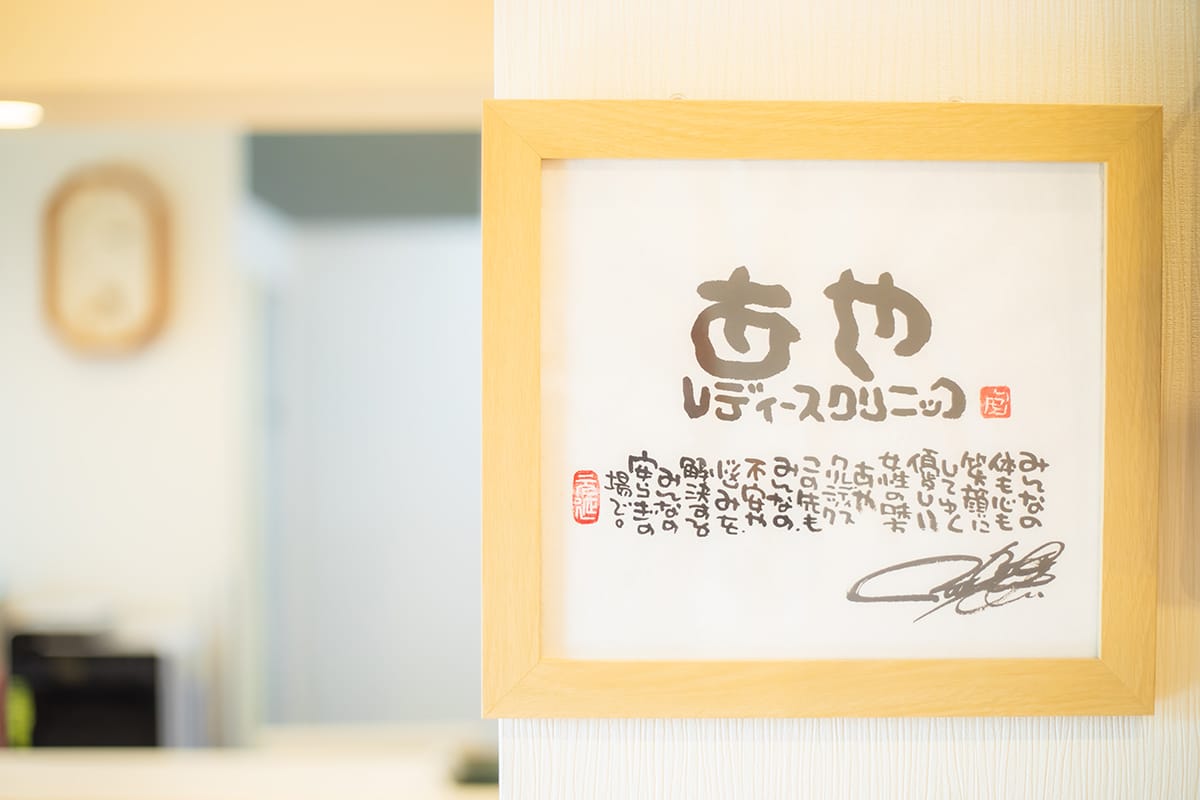 あや
レディースクリニック
みんなの
体も心も
笑顔に
してゆく
優しい
女性の味方
あや
レディース
クリニック
この先も
みんなの、
不安や
悩みを、
解決する
みんなの
安らぎの
場で。